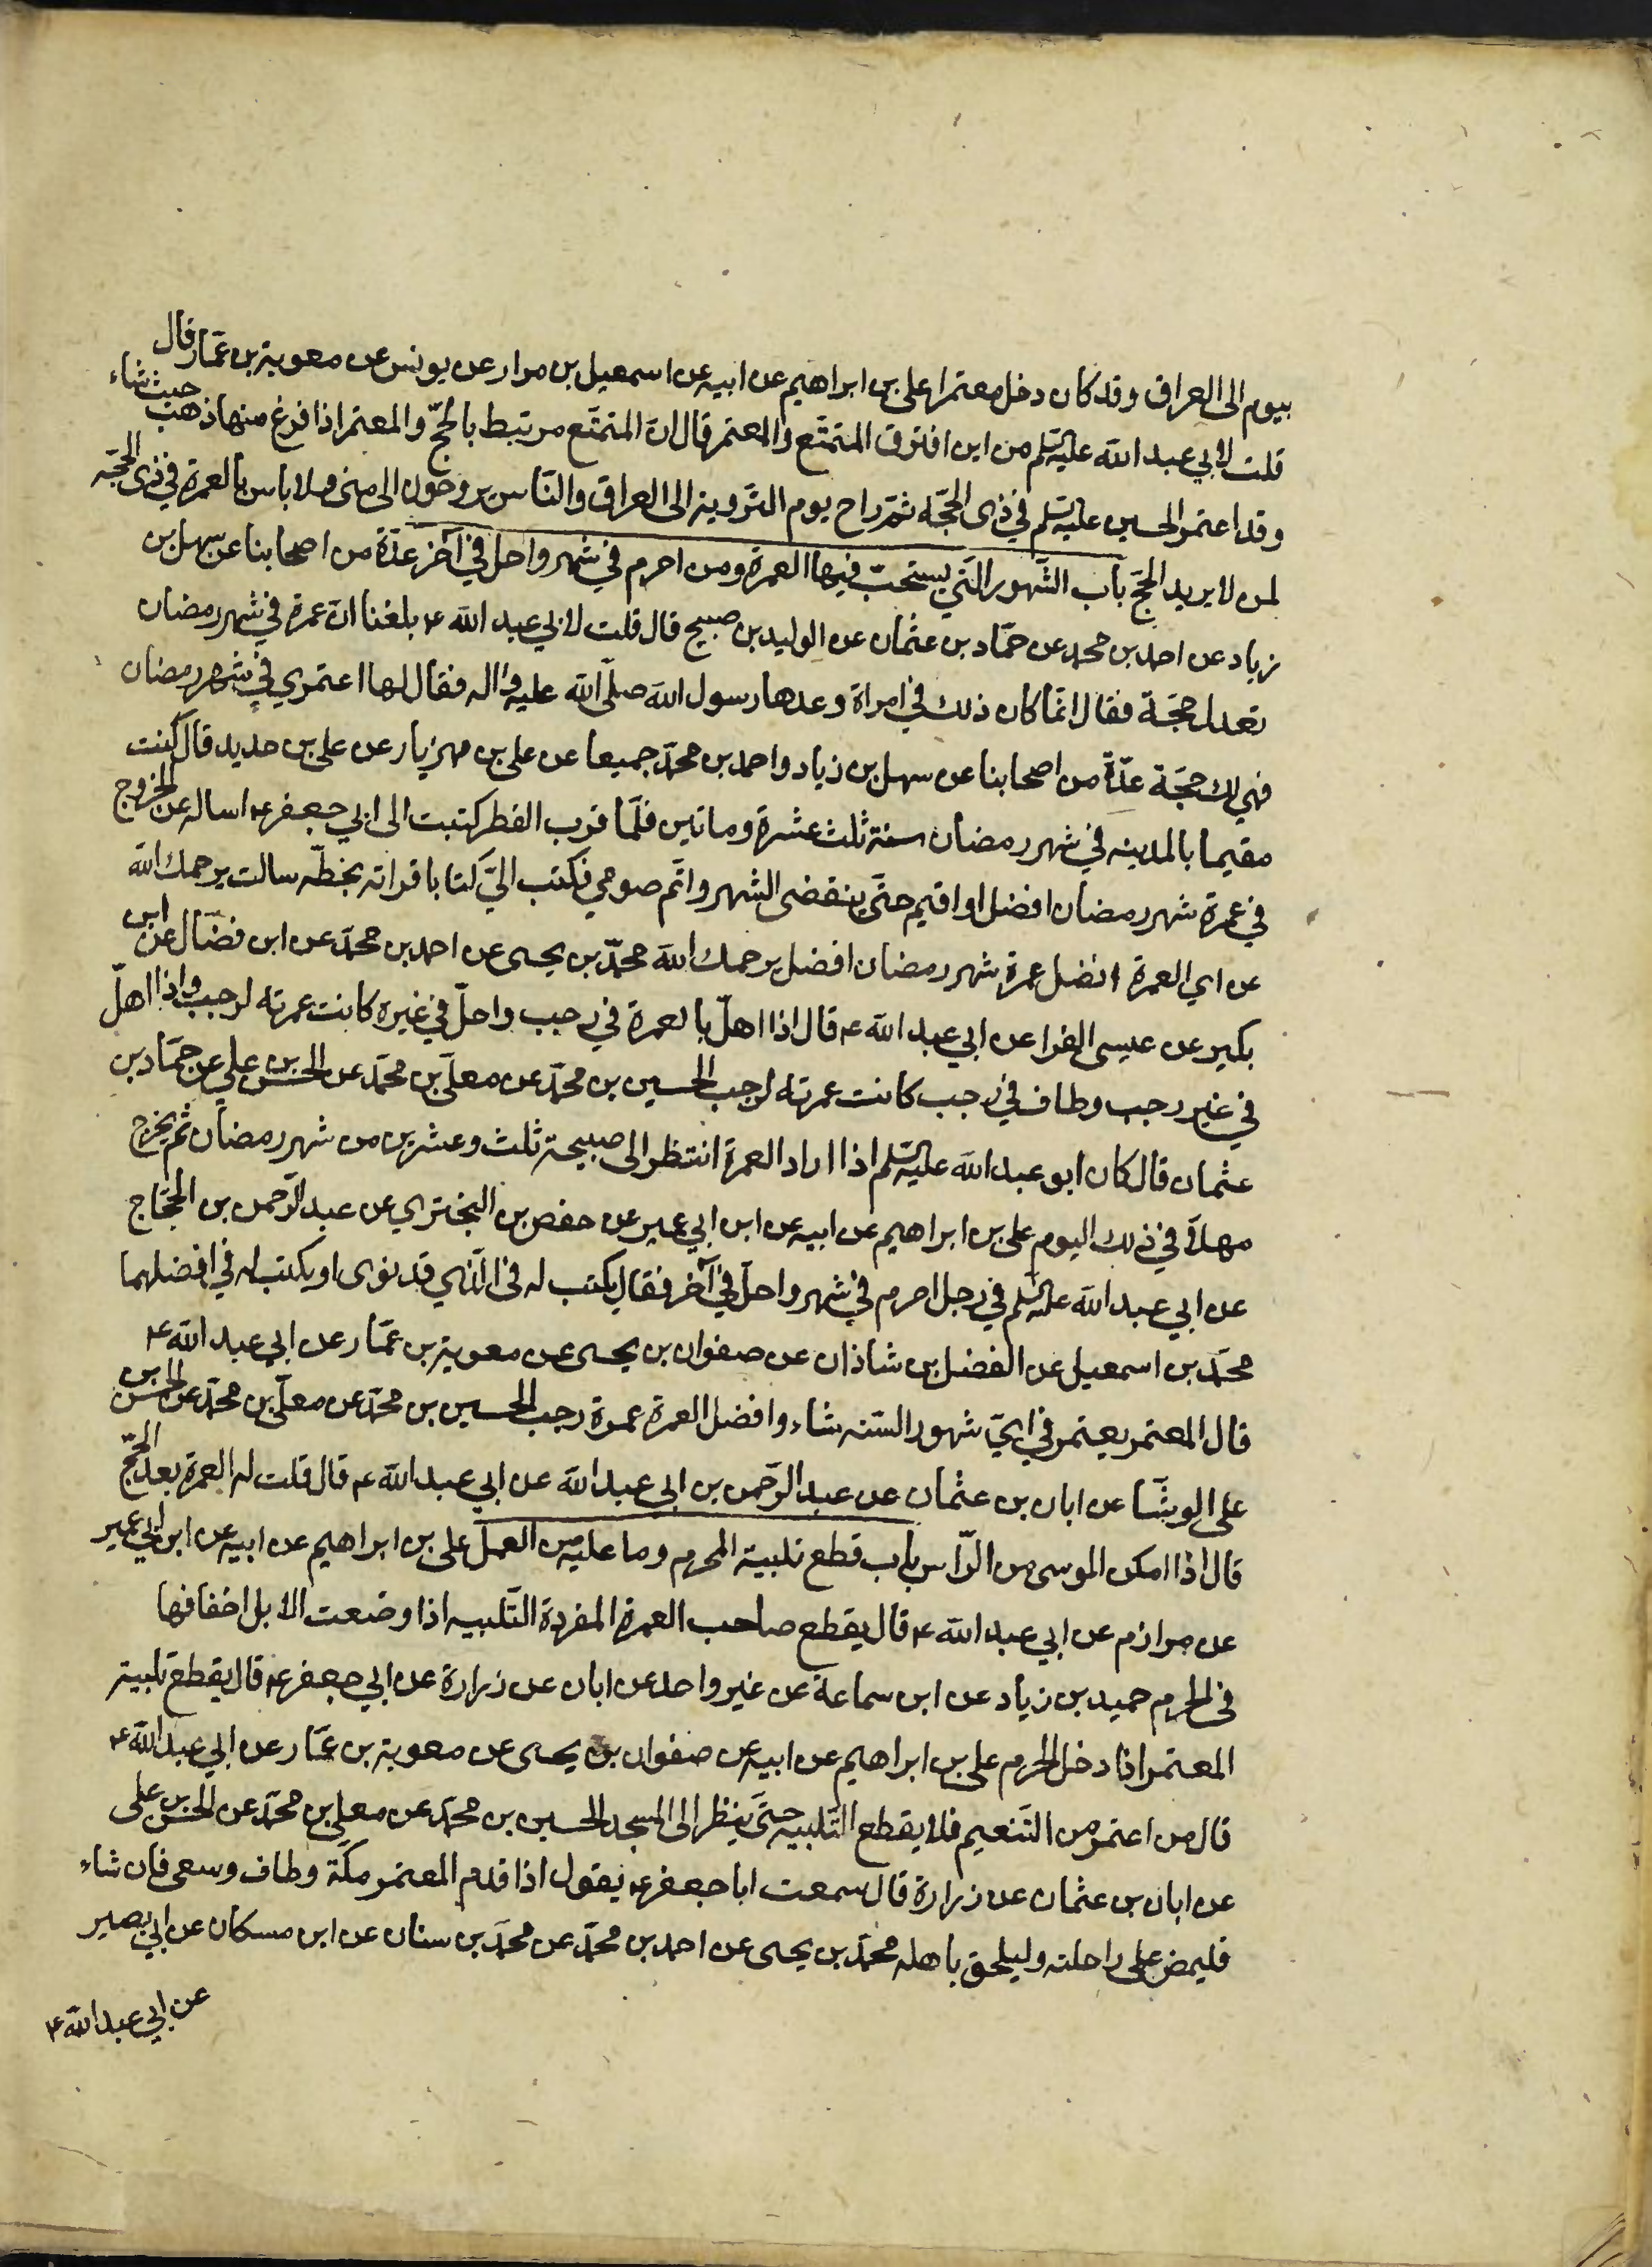 بيوم الى العراق وقد كان دخل معتمرا على بن ابراهيم عن ابيه عن اسمعيل بن مرار عن يونس عن معوية بن عمّار قال
قلت لابي عبد الله عليه السّلم من اين افترق المتمتّع والمعتمر قال انّ المتمتّع مرتبط بالحجّ والمعتمر اذا فرغ منها ذهب حيث شاء
وقد اعتمر الحسين عليه السّلم في ذى الحجّة ثمّ راح يوم التّروية الى العراق والنّاس يروحون الى منى ولا باس بالعمرة في ذى الحجّه
لمن لا يريد الحجّ باب الشّهور الّتي يستحبّ فيها العمرة ومن احرم في شهر واحل في آخر عدّة من اصحابنا عن سهل بن
زياد عن احمد بن محمد عن حمّاد بن عثمان عن الوليد بن صبيح قال قلت لابي عبد الله ع بلغنا انّ عمرة في شهر رمضان
تعدل حجّة فقال انّما كان ذلك في امراة وعدها رسول الله صلّى الله عليه واله فقال لها اعتمري في شهر رمضان
فهي لك حجّة عدّة من اصحابنا عن سهل بن زياد واحمد بن محمّد جميعا عن على بن مهزيار عن على بن حديد قال كنت
مقيما بالمدينه في شهر رمضان سنة ثلث عشرة وماتين فلمّا قرب الفطر كتبت الى ابي جعفر ع اساله عن الخروج
في عمرة شهر رمضان افضل او اقيم حتّى ينقضى الشهر واتّم صومي فكتب اليّ كتابا قراته بخطّه سالت يرحمك الله
عن اي العمرة افضل عمرة شهر رمضان افضل يرحمك الله محمّد بن يحيى عن احمد بن محمّد عن ابن فضّال عن ابن
بكير عن عيسى الفرا عن ابي عبد الله ع قال اذا اهلّ بالعمرة في رجب واحلّ في غيره كانت عمرته لرجب واذا اهلّ
في غير رجب وطاف في رجب كانت عمرته لرجب الحسين بن محمّد عن معلّى بن محمّد عن الحسن بن علي عن حمّاد بن
عثمان قال كان ابو عبد الله عليه السّلم اذا اراد العمرة انتظر الى صبيحة ثلث وعشرين من شهر رمضان ثم يخرج
مهلّا في ذلك اليوم على بن ابراهيم عن ابيه عن ابن ابي عمير عن حفص بن البختري عن عبد الرّحمن بن الحجّاج
عن ابي عبد الله عليه السّلم في رجل احرم في شهر واحلّ في آخر فقال يكتب له في الّذي قد نوى او يكتب له في افضلهما
محمّد بن اسمعيل عن الفضل بن شاذان عن صفوان بن يحيى عن معوية بن عمّار عن ابي عبد الله ع
قال المعتمر يعتمر في ايّ شهور السّنه شاء وافضل العمرة عمرة رجب الحسين بن محمّد عن معلّى بن محمّد عن الحسن بن
على الوشّا عن ابان بن عثمان عن عبد الرّحمن بن ابي عبد الله عن ابي عبد الله ع قال قلت له العمرة بعد الحجّ
قال اذا امكن الموسى من الرّاس باب قطع تلبية المحرم وما عليه من العمل على بن ابراهيم عن ابيه عن ابن ابي عمير
عن مرازم عن ابي عبد الله ع قال يقطع صاحب العمرة المفردة التّلبيه اذا وضعت الابل اخفافها
في الحرم حميد بن زياد عن ابن سماعة عن غير واحد عن ابان عن زرارة عن ابي جعفر ع قال يقطع تلبية
المعتمر اذا دخل الحرم على بن ابراهيم عن ابيه عن صفوان بن يحيى عن معوية بن عمّار عن ابي عبد الله ع
قال من اعتمر من التّنعيم فلا يقطع التّلبيه حتّى ينظر الى المسجد الحسين بن محمّد عن معلى بن محمّد عن الحسن بن على
عن ابان بن عثمان عن زرارة قال سمعت ابا جعفر ع يقول اذا قدم المعتمر مكّة وطاف وسعى فان شاء
فليمض على راحلته وليلحق باهله محمّد بن يحيى عن احمد بن محمّد عن محمّد بن سنان عن ابن مسكان عن ابي بصير
عن ابي عبد الله ع